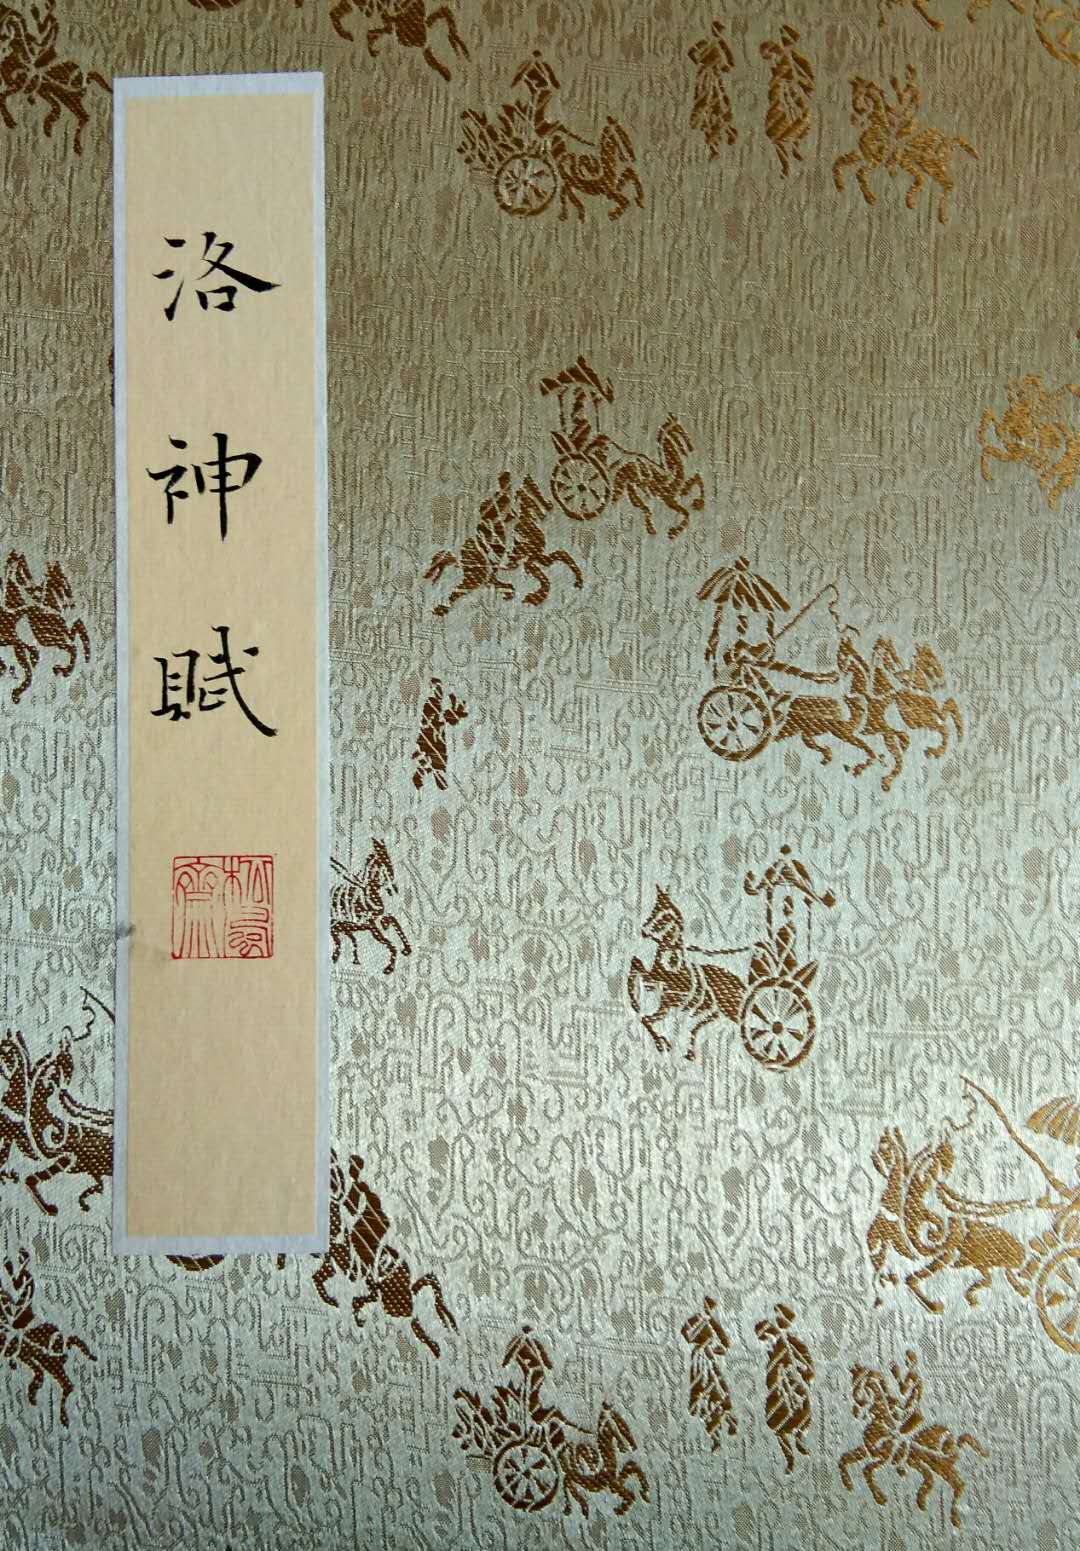 洛神賦